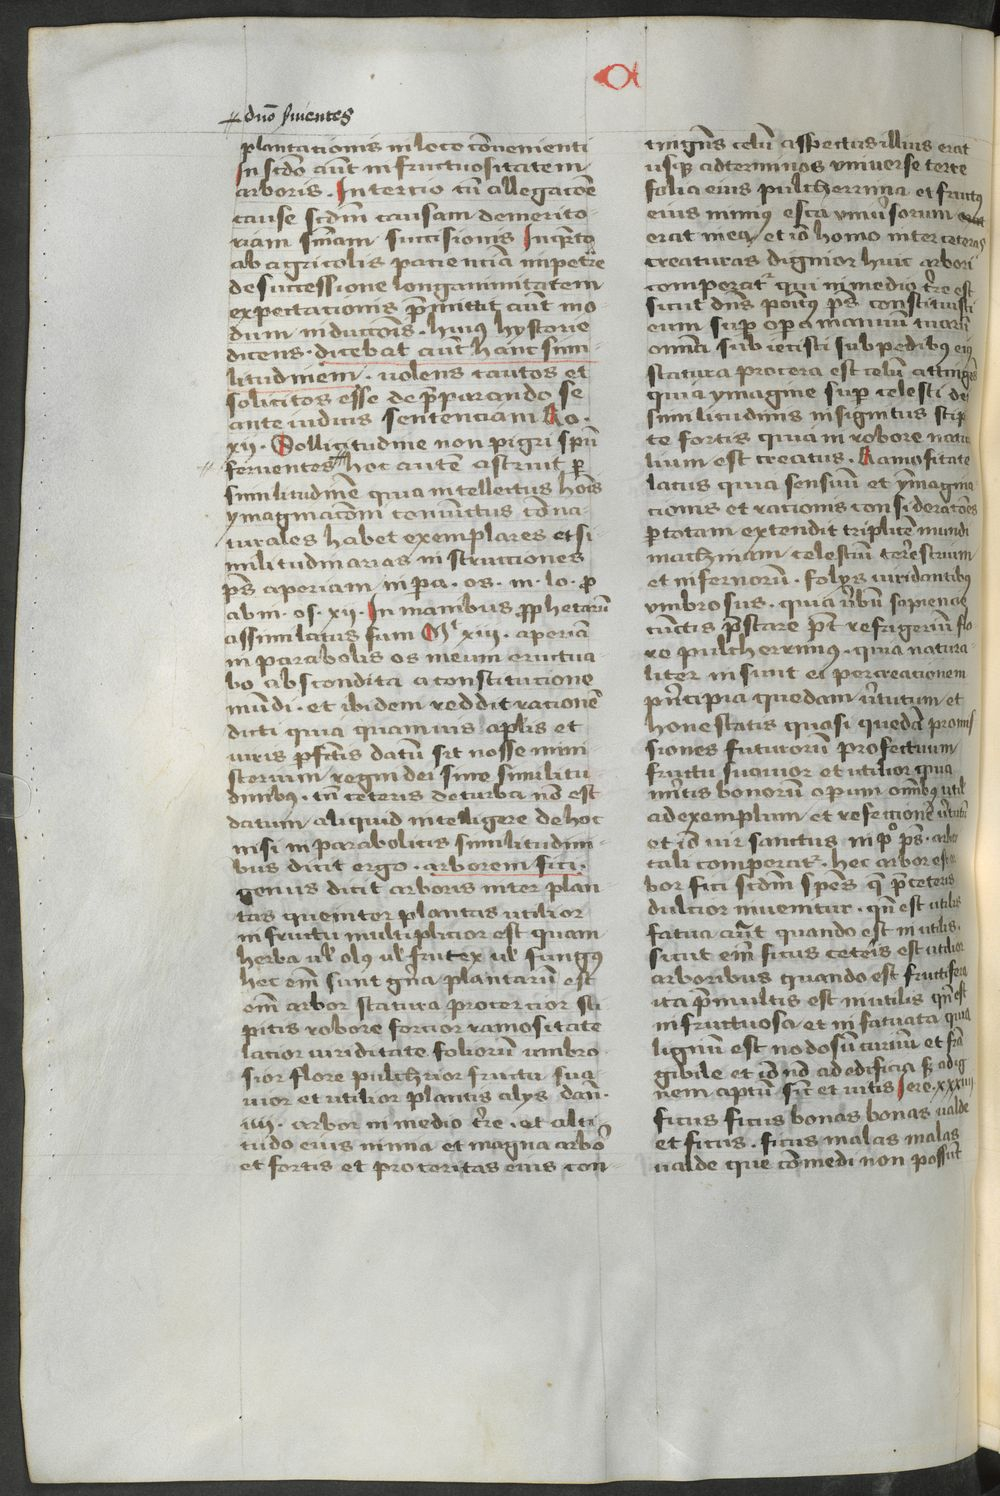 dn̄o s̄uientes
plantationis in loco cōuenienti
In scd̄o aūt infructuositatem
arboris . In tercio tn̄ allegacōē
cause scd̄m causam demerito-
riam sūmam succisionis In q̄rto
ab agricolis pacienciā impetrē
de successione longanimitatem
expectationis p̄mittit aūt mo
dum inducc̄ois . huiꝰ hystorie
dicens . dicebat aūt hanc simi
litudinem . uolens cautos et
solicitos esse de p̄parando se
ante iudicis sentenciam Ro .
xii . Sollicitudine non pigri spū
feruentes hoc autē astruit ꝑ
similitudinē quia intellectus hoīs
ymaginacōni coniunctus cōna-
turales habet exemplares et si
militudinarias instructiones
pš aperiam in pa . os . m . lo . ꝓ
ab in . os . xii . In manibus ꝓphetarū
assimilatus sum Mt xiii . aperiā
in parabolis os meum eructua-
bo abscondita a constitucione
mūdi . et ibidem reddit rationē
dicti quia quamuis aplis et
uiris ꝑfc̄is datū sit nosse mini
sterium regni dei sine similitu
dinibꝰ . tn̄ ceteris de turba nō est
datum aliquid intelligere de hoc
nisi in parabolicis similitudini
bus dicit ergo . arborem fici .
genus dicit arboris inter plan-
tas que inter plantas utilior
in fructu multiplicior est quam
herba ul̓ olꝰ ul̓ frutex ul̓ fungꝰ
hec em̄ sunt gn̄a plantarū est
om̄ arbor statura procercior sti
pitis robore forcior ramositate
lacior uiriditate foliorū umbro
sior flore pulchrior fructu sua
uior et utilior plantis alys dan̄ .
iiii . arbor in medio tr̄e . et alti-
tudo eius nimia et magna arbor
et fortis et proceritas eius con-
tingēs celū aspectus illius erat
usqꝫ ad terminos vniuerse terre
folia eius pulcherrima et fructꝰ
eius nimiꝰ esca vniūsorum
erat in ea , et iō homo inter ceteras
creaturas dignior huic arbori
comperat̓ qui in medio tr̄e est
sicut dn̄s positꝰ pš constituisti
eum suꝑ opera manuū tuarū
omīa subiecisti sub pedibus eiꝰ
statura procera est celū attingēs
quia ymagine suꝑ celesti dei
similitudinis insignitus stipi
te fortis quia in robore natu
lium est creatus . Ramositate
latus quia sensuū et ymagina
cionis et racionis consideracōes
ꝑ totam extendit triplicē mundi
machinam celestiū terrestrium
et infernorū . folys uiridantibꝰ
vmbrosus . quia ūbū sapiencie
cunctis p̄stare pt̄ refrigeriū flo
re pulcherrimꝰ . quia natura-
liter insunt ei per creacionem
pn̄cipia quedam ūtutum et
honestatis quasi quedā promis
siones futurorū profectuum
fructu suauior et utilior quia
mītis bonorū operum om̄ibꝰ util
ad exemplum et refectionē ūtutū
et iō uir sanctus in pº pš . arbor
tali comperat̓ . hec arbor est
bor fici scd̄m spēs q̄ p̄ ceteris
dulcior inuenitur . qn̄ est utilis
fatua aūt quando est inutilis .
sicut em̄ ficus ceteris est utilior
arboribus quando est fructifera
ita p̄ multis est inutilis qn̄ est
infructuosa et infatuata quia
lignū est nodosū curuū et frā
gibile et iō nō ad edificia sꝫ ad ig
nem aptū sīt et uitis Jere . xxxiiij
ficus ficus bonas bonas ualde
et ficus . ficus malas malas
ualde que cōmedi non possūt